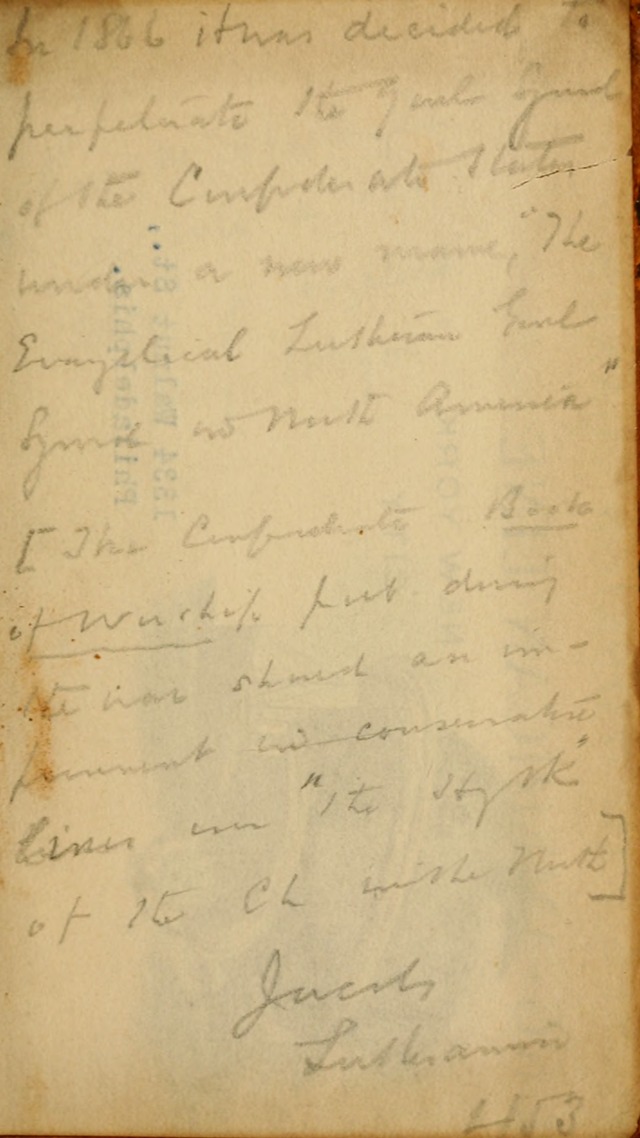 In 1866 it was decided to
perpetuate the Genl Synod
of the Confederate States
under a new name, "The
Evangelical Lutheran Genl
Synod in North America"
[The Confederate Book
of Worship pub during
the war showed an im-
provement in conservative
lines on "The Hy Bk"
of the Ch in the North]
Jacobs
Lutherans
453
1334 Walnut St.
Philadelphia